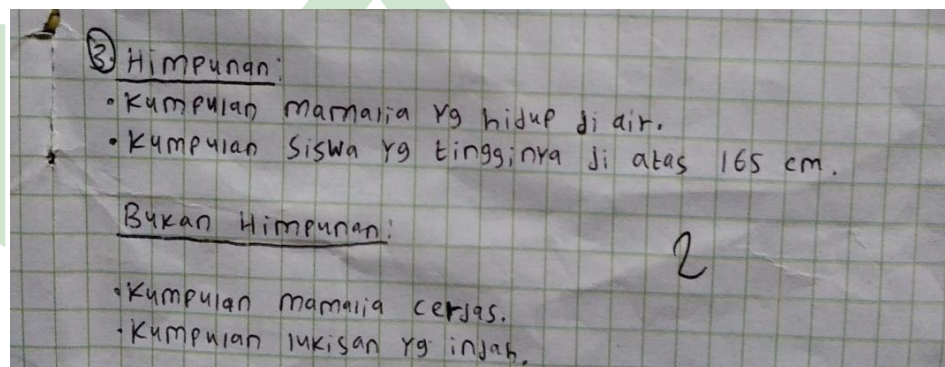 3. Himpunan:
• Kumpulan mamalia yg hidup di air.
• Kumpulan siswa yg tingginya di atas 165 cm.
Bukan Himpunan:
2
• Kumpulan mamalia cerdas.
• Kumpulan lukisan yg indah.